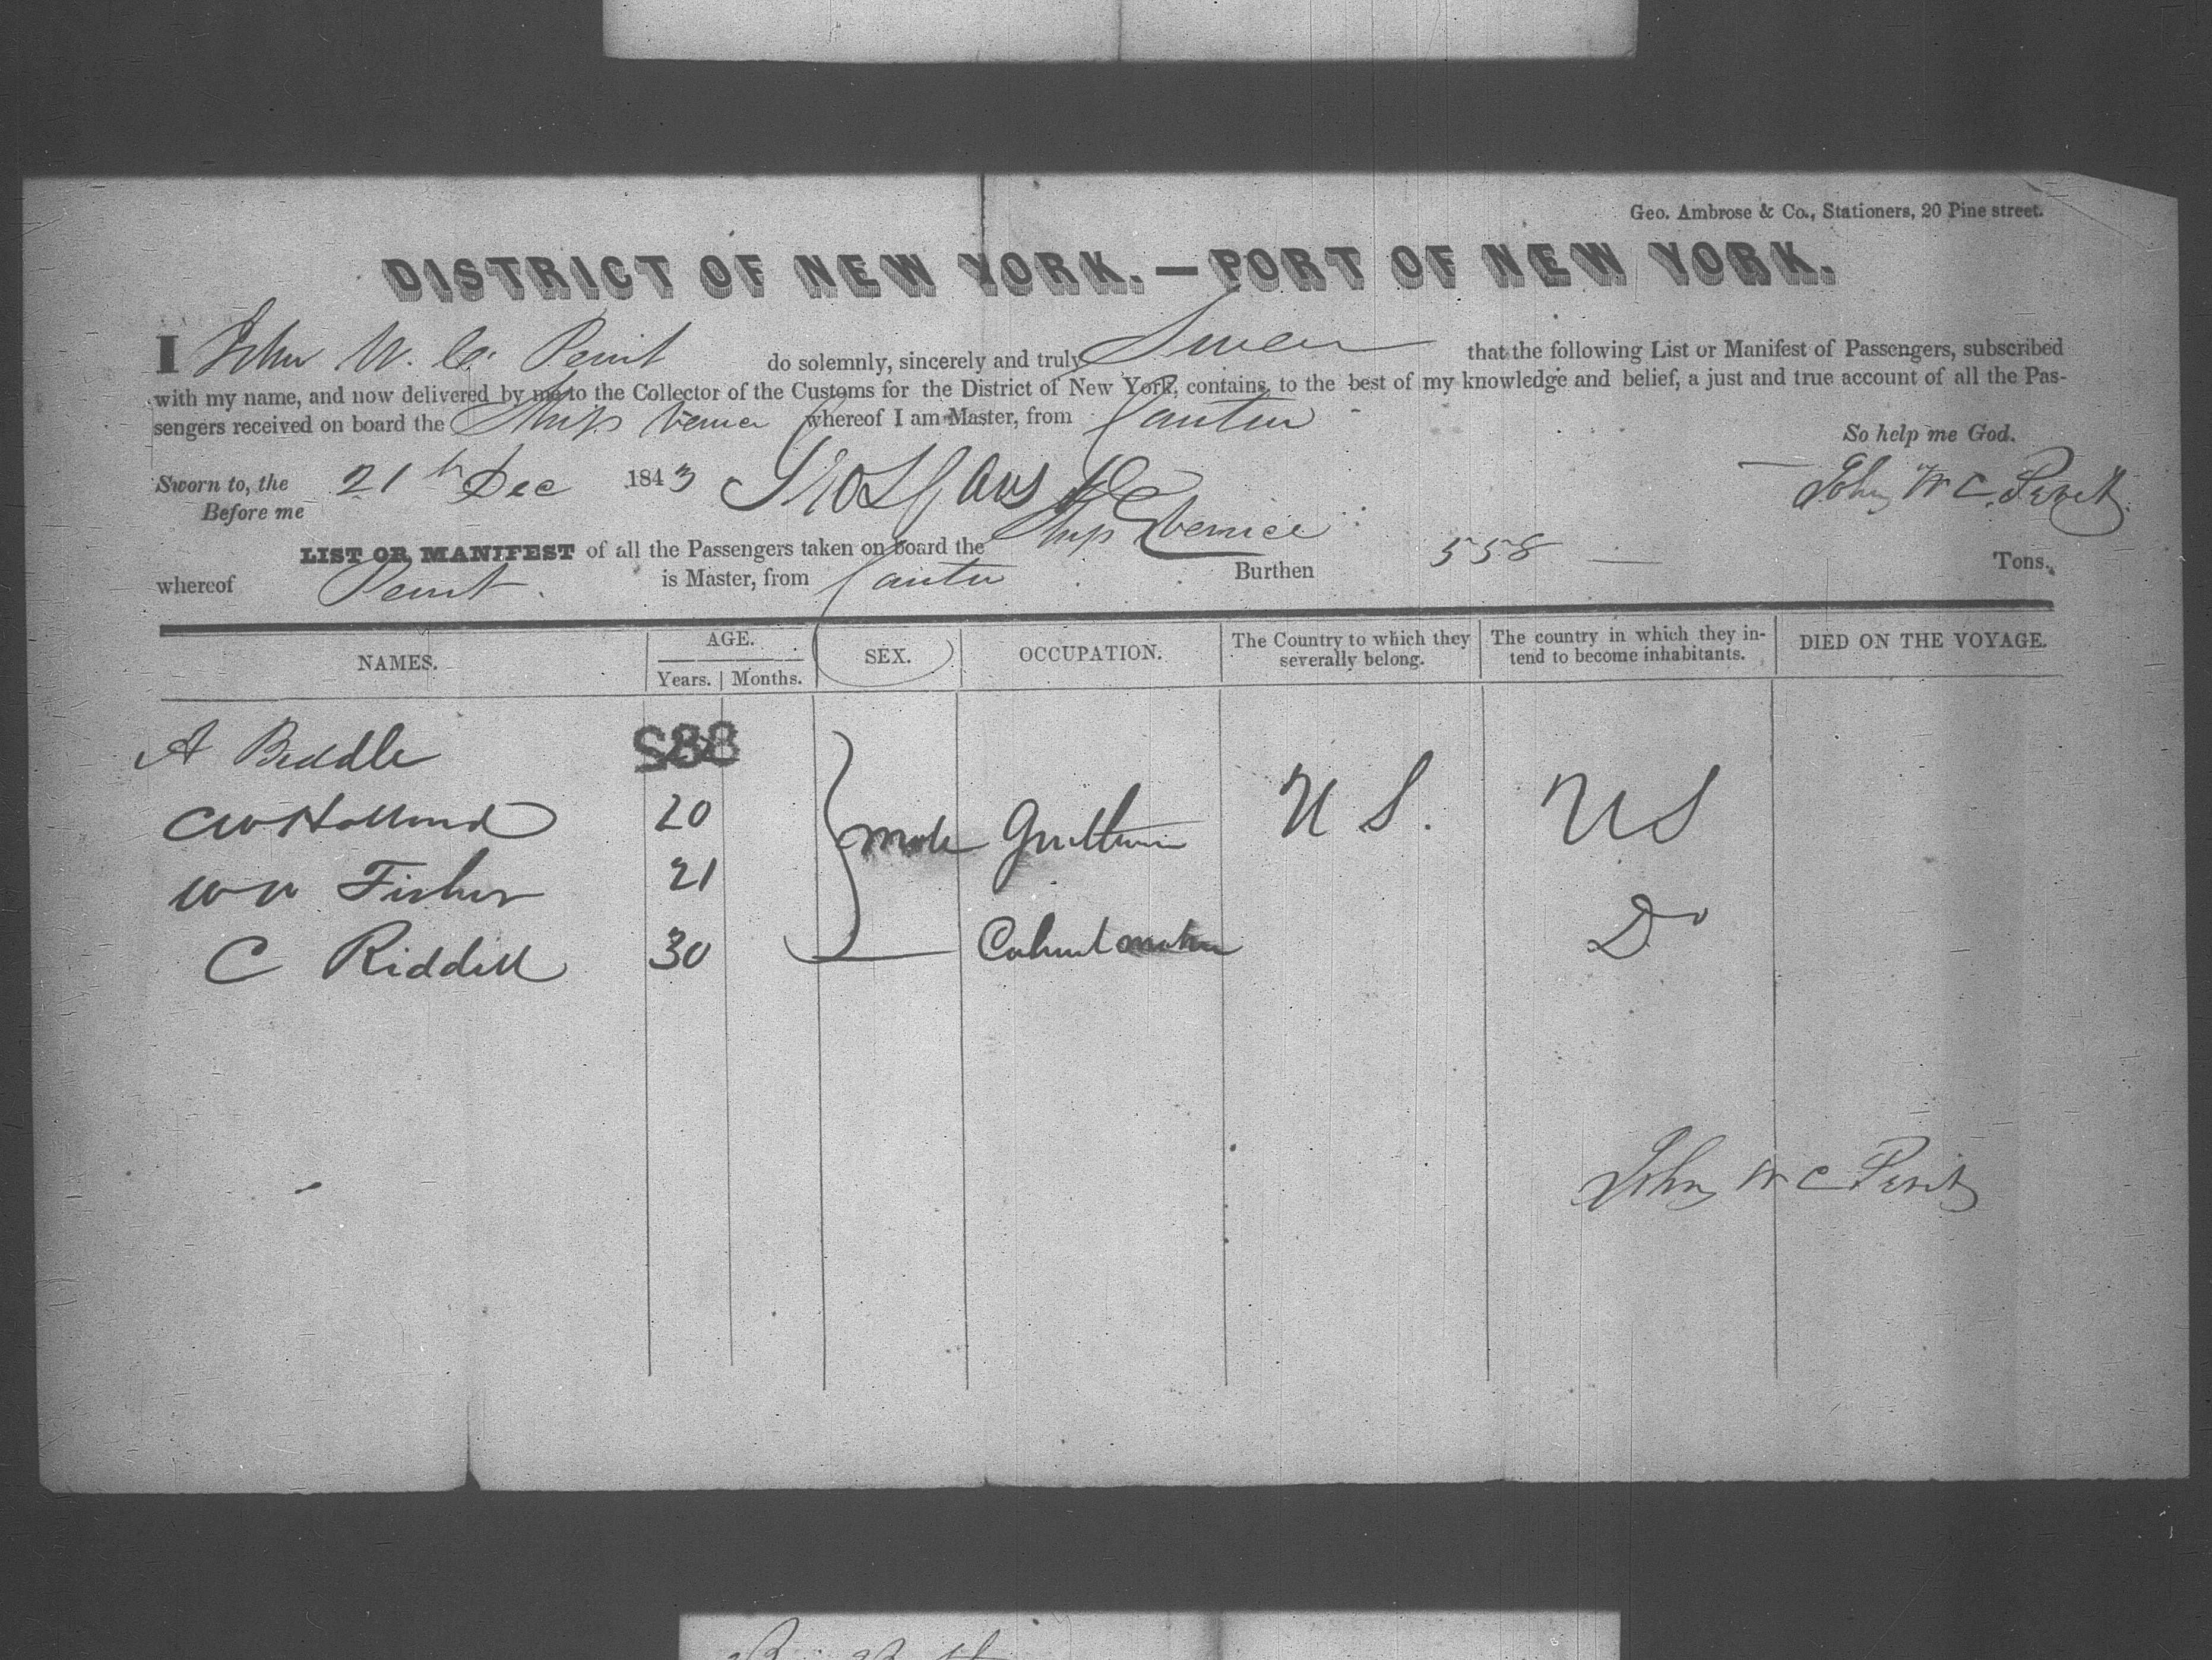 Geo. Ambrose & Co., Stationers, 20 Pine street.
DISTRICT OF NEW YORK.—PORT OF NEW YORK.
I John W. C. Perit do solemnly, sincerely and truly Swear that the following List or Manifest of Passengers, subscribed
with my name, and now delivered by me to the Collector of the Customs for the District of New York, contains, to the best of my knowledge and belief, a just and true account of all the Pas-
sengers received on board the Ship whereof I am Master, from Canton
So help me God.
Sworn to, the 21st Dec 1843 John W C Perit
Before me
LIST OR MANIFEST of all the Passengers taken on board the Ship
whereof Perit is Master, from Canton Burthen 558 Tons.
NAMES. AGE. SEX. OCCUPATION. The Country to which they severally belong. The country in which they intend to become inhabitants. DIED ON THE VOYAGE.
Years. Months.
A Biddle 288
CW Holland 20 male Gentlemen U S. U S
Wm Fisher 21
C Riddell 30 Cabinet maker Do
John W C Perit